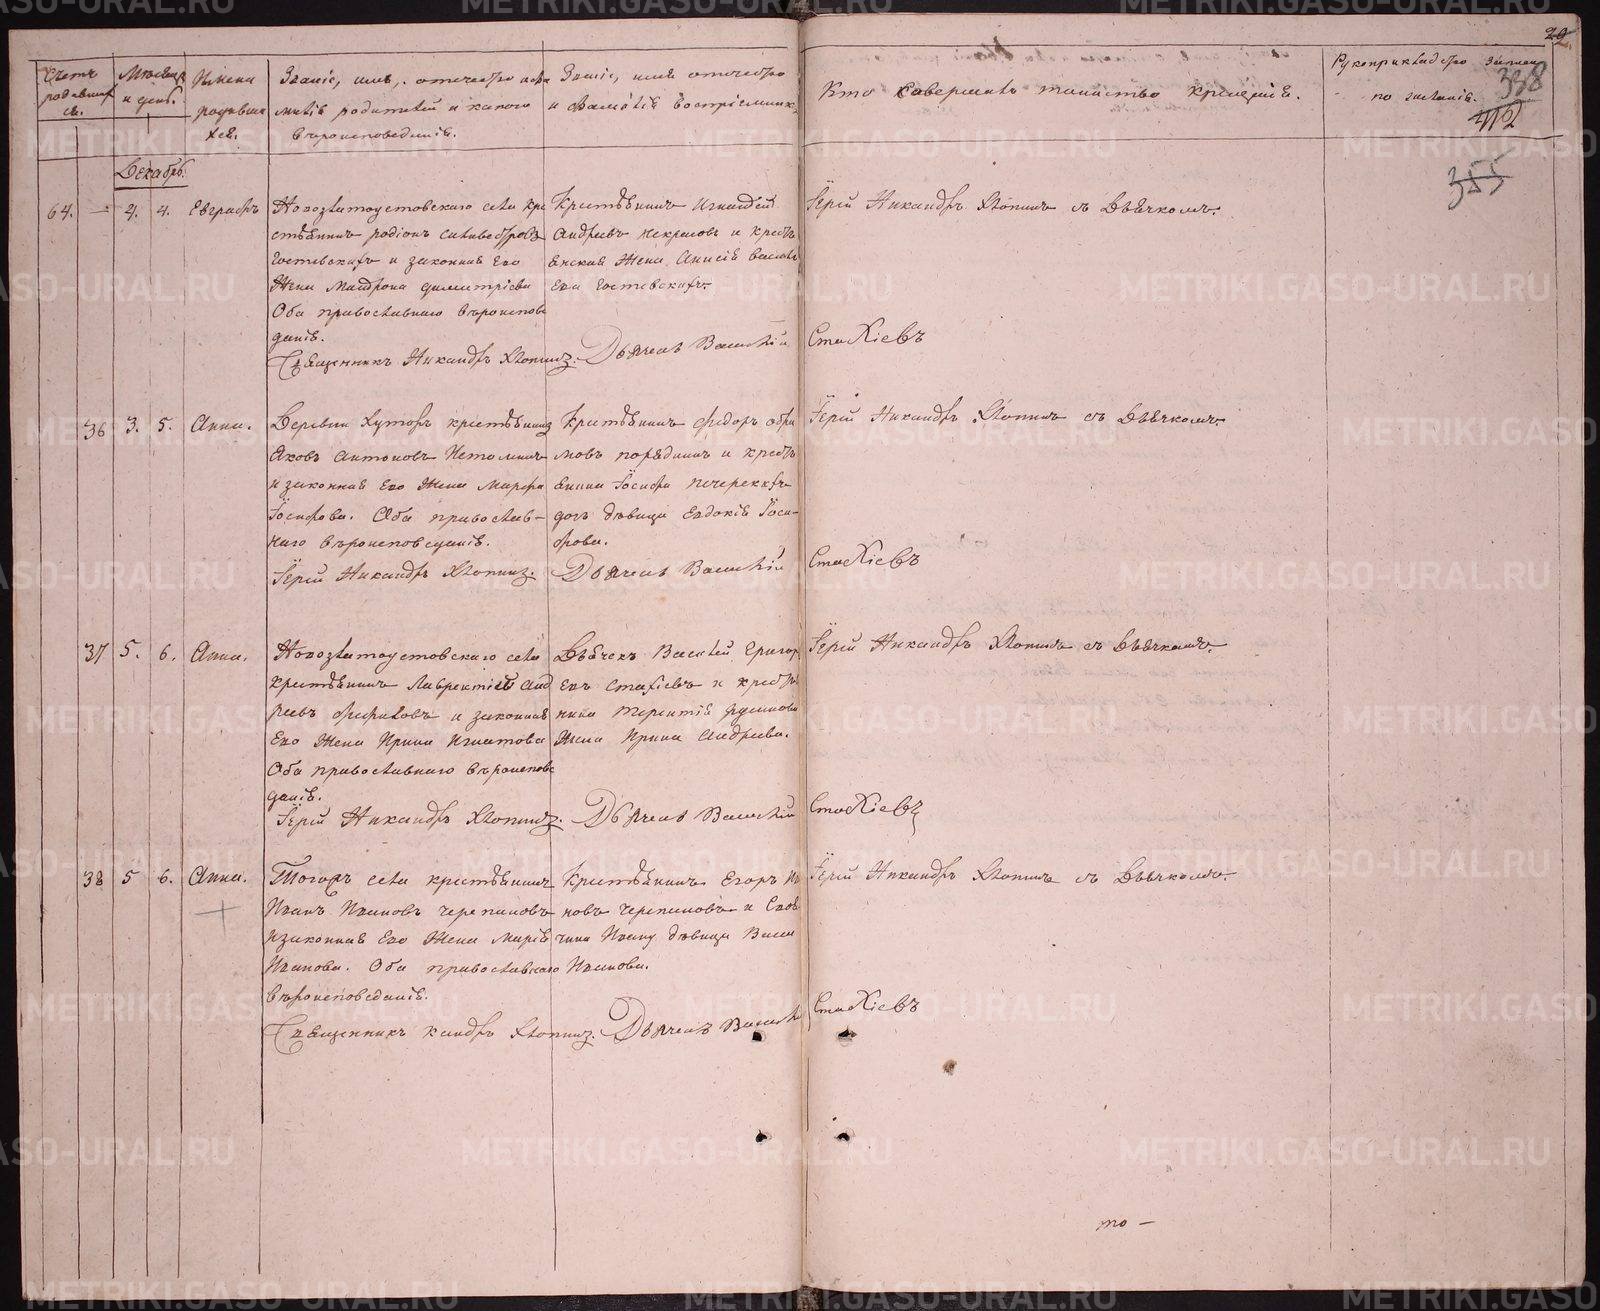 29
338
412
355
Счетъ родившихся.
Мѣсяцъ и день.
Имена родившихся.
Званіе, имя, отечество и фамилія родителей и какого вѣроисповеданія.
Званіе, имя отечество и фамилія воспріемник
Кто совершалъ таинство крещенія.
Рукоприкладство
по желанію.
Декабрь.
64. — 2. 4. Евграфъ
Новозлатоустовскаго села кре
стьянинъ родіонъ силивестровъ
Гостевскихъ и законная Его
Жена Матрона димитріева
Оба православнаго вѣроиспове
данія.
Крестьянинъ Игнатей
Андреевъ Некрасовъ и крестья
янская Жена Анисія Василь
Ева Гостевскихъ.
Іерей Никандръ Хлопинъ съ Дьячкомъ.
Священникъ Никандръ Хлопинъ. Дьячекъ Василій Стахіевъ
36 3. 5. Анна.
Деревни Хуторъ крестьянинъ
Яковъ Антоновъ
и законная Его Жена Марфа
Іосифова. Оба православ-
наго вѣроисповеданія.
Крестьянинъ Федоръ
мовъ порядинъ и кресть
янина Іосифа
дочь дѣвица Евдокія Іоси-
фова.
Іерей Никандръ Хлопинъ съ Дьячкомъ
Іерей Никандръ Хлопинъ. Дьячекъ Василій Стахіевъ
37 5. 6. Анна.
Новозлатоустовскаго села
крестьянинъ Лаврентій Анд
реевъ и законная
Его Жена Ирина Игнатова
Оба православнаго вѣроиспове
данія.
Дьячекъ Василей Григорь
Евъ Стахіевъ и кресть
нина Терентія
Жена Ирина Андреева.
Іерей Никандръ Хлопинъ съ Дьячкомъ.
Іерей Никандръ Хлопинъ. Дьячекъ Василій Стахіевъ
38 5 6. Анна.
Тогожъ села крестьянинъ
Иванъ Ивановъ черепановъ
и законная Его Жена Марія
Иванова. Оба православнаго
вѣроисповеданія.
Крестьянинъ Егоръ Ива
новъ Черепановъ и
Ивану дѣвица Васса
Иванова.
Іерей Никандръ Хлопинъ съ Дьячкомъ.
Священникъ кандръ Хлопинъ. Дьячекъ Василій Стахіевъ
то —
METRIKI.GASO-URAL.RU